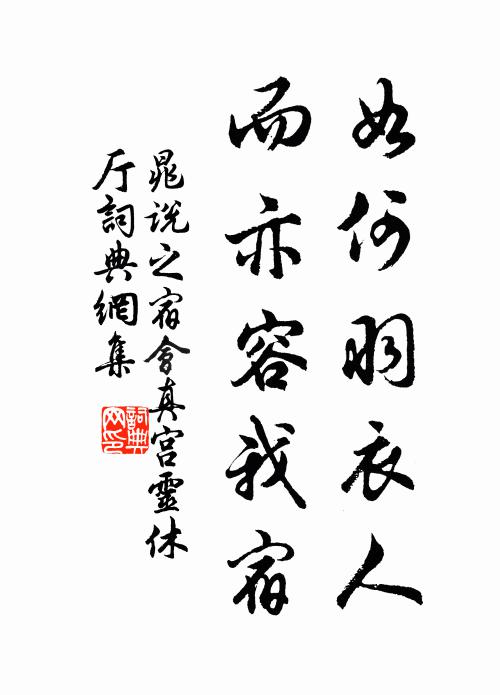 如何羽衣人
而亦容我宿
晁说之宿會真宫靈休
厅詞典網集
詞典网印